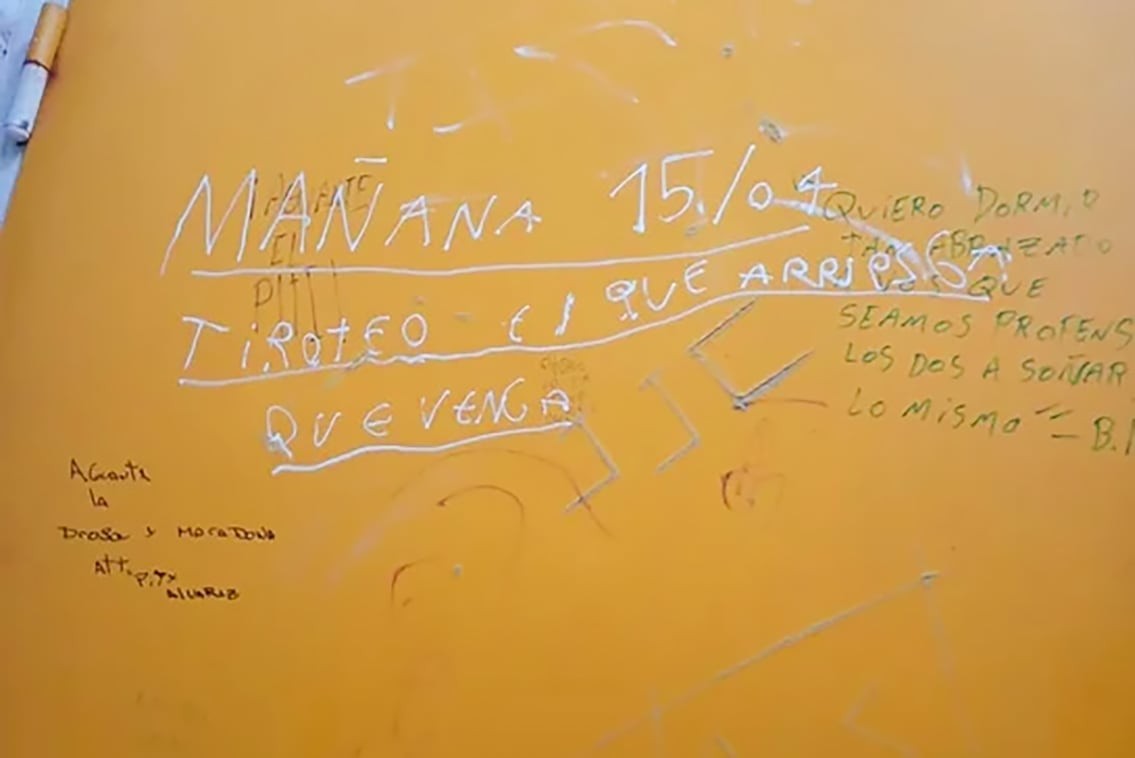 MAÑANA 15/04
TiROTEO El QUE ARRIESGA
QUE VENGA
AGUANTE
EL
PITI
QUiERO DORMIR
TAN ABRAZADO
QUE
SEAMOS PROTENS
LOS DOS A SOÑAR
LO MISMO" - B.
AGuante
la
Droga y MaraDona
Att. Pity
ALVAREZ